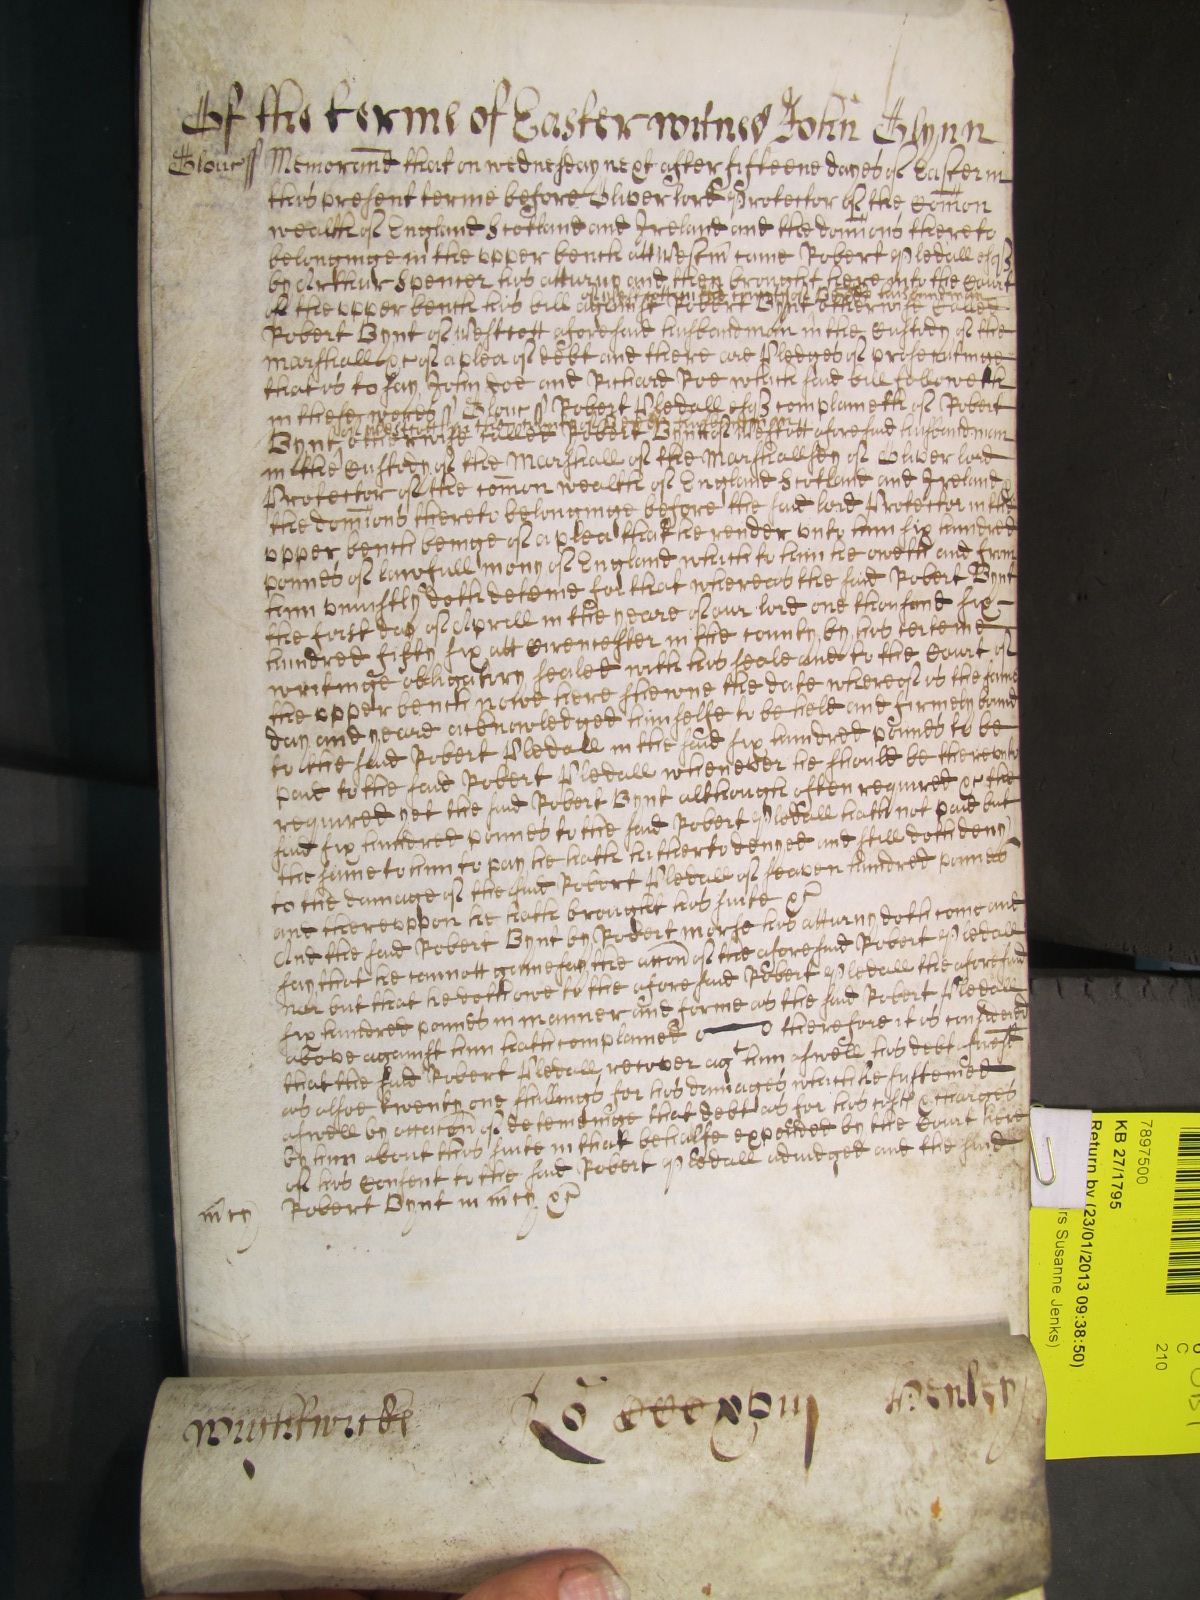 Of the terme of Easter witnes John Glynn
Glouc ss Memorand that on wednesday next after fifteene dayes of Easter in
this present terme before Oliver lord Protector of the Comon
wealth of England Scotland and Ireland and the dominions thereto
belonginge in the upper bench att Westm came Robert Pledall esq
by Arthur Spencer his atturny and then brought here into the Court
of the upper bench his bill against Robert Bynt otherwise called
Robert Bynt of Westcott aforesaid husbandman in the Custody of the
Marshall &c of a plea of debt and there are Pledges of prosecutinge
that is to say John Doe and Richard Roe which said bill followeth
in these wordes ss Glouc ss Robert Pledall esq complaineth of Robert
Bynt otherwise called Robert Bynt of Westcott aforesaid husbandman
in the Custody of the Marshall of the Marshallsey of Oliver lord
Protector of the comon wealth of England Scotland and Ireland &
the dominions thereto belonginge before the said lord Protector in the
upper bench beinge of a plea that he render unto him six hundred
poundes of lawfull mony of England which to him he oweth and from
him uniustly doth deteine for that whereas the said Robert Bynt
the first day of Aprill in the yeare of our lord one thousand six
hundred fifty six att Cirencester in the county by his certeine
writinge obligatory sealed with his seale and to the Court of
the upper bench nowe here shewne the date whereof is the same
day and yeare acknowledged himselfe to be held and firmely bound
to the said Robert Pledall in the said six hundred poundes to be
paid to the said Robert Pledall whenever he should be thereunto
required yet the said Robert Bynt although often required &c the
said six hundred poundes to the said Robert Pledall hath not paid but
the same to him to pay he hath hitherto denyed and still doth deny
to the damage of the said Robert Pledall of seaven hundred poundes
and thereuppon he hath brought his suite &c
And the said Robert Bynt by Robert Morse his atturny doth come and
say that he cannott gainesay the accon of the aforesaid Robert Pledall
nor but that he doth owe to the aforesaid Robert Pledall the aforesaid
six hundred poundes in manner and forme as the said Robert Pledall
above against him hath complained therefore it is considered
that the said Robert Pledall recover agt him aswell his debt aforesd
as alsoe twenty one shillings for his damages which he susteined
aswell by occacon of deteininge that debt as for his costs & charges
by him about this suite in that behalfe expended by the Court here
of his Consent to the said Robert Pledall adiudged and the said
mcy Robert Bynt in mcy &c
Wightwicke Ro cccxviii Henley
7897500
KB 27/1795
Return by (23/01/2013 09:38:50)
rs Susanne Jenks)
210
C